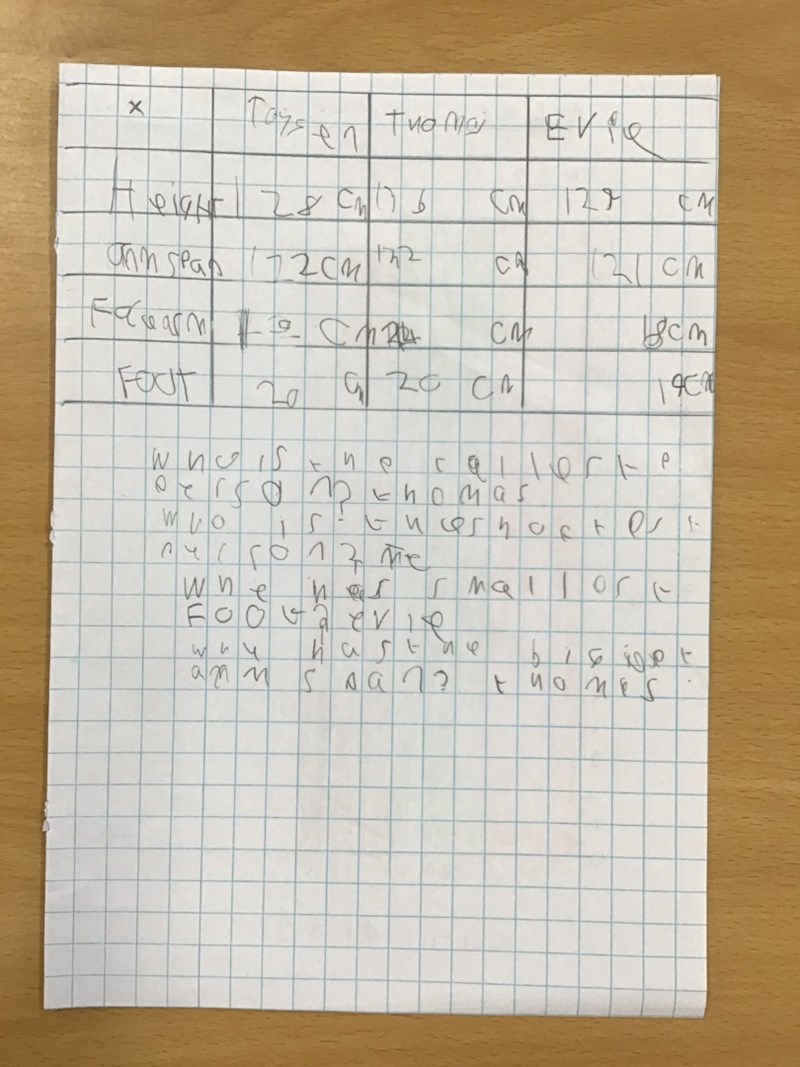 x Taysen Thomas EVie
Height 128 cm 136 cm 129 cm
armspan 122cm 132 cm 121 cm
Forearm cm cm 18cm
FOOT 20 cm 20 cm 19cm
who is the tallest e
person? thomas
who is? the shortest
person? me
Whe has smallost
FOOt? evie
who has the bigget
arm span? thomas.